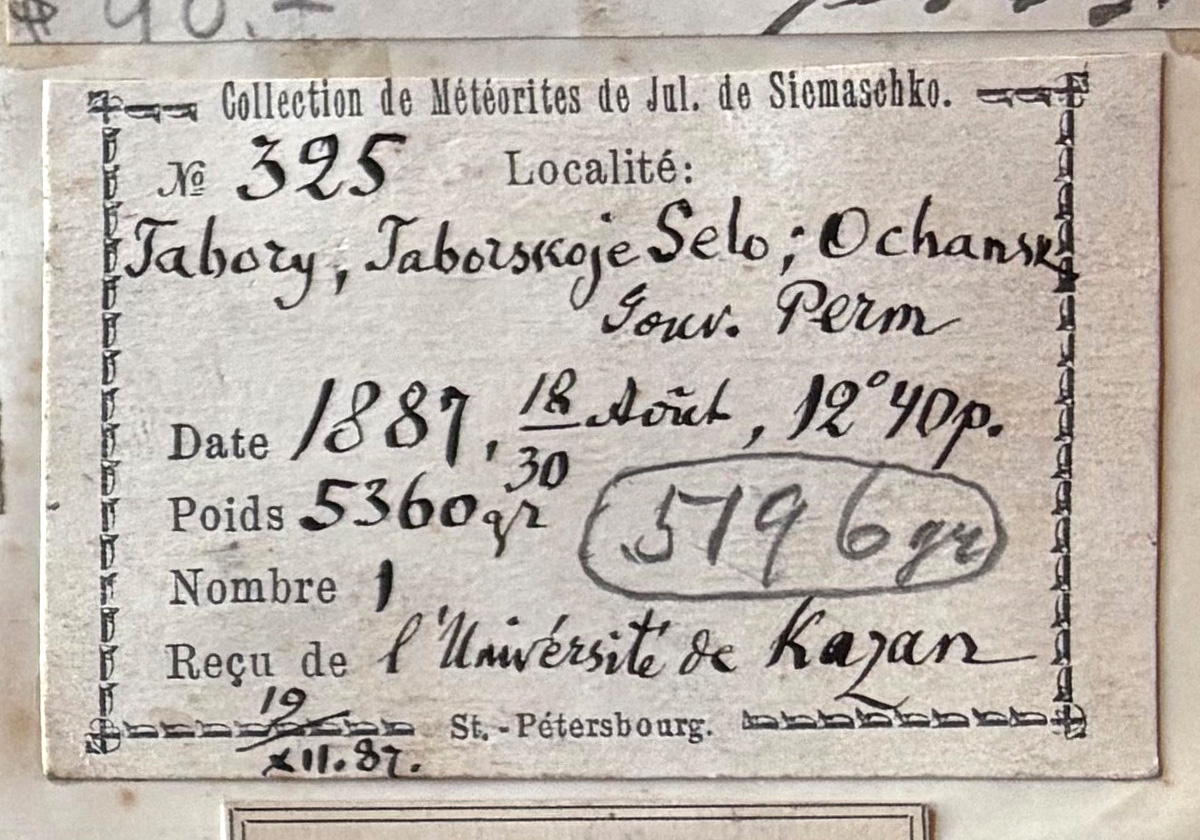 $ 90.–
Collection de Météorites de Jul. de Siemaschko.
№ 325 Localité:
Tabory, Taborskoje Selo; Ochansk
Gouv. Perm
Date 1887, 18/30 Août, 12°40p.
Poids 5360 gr
5796 gr
Nombre 1
Reçu de l'Univérsité de Kazan
St.-Pétersbourg.
19/XII.87.